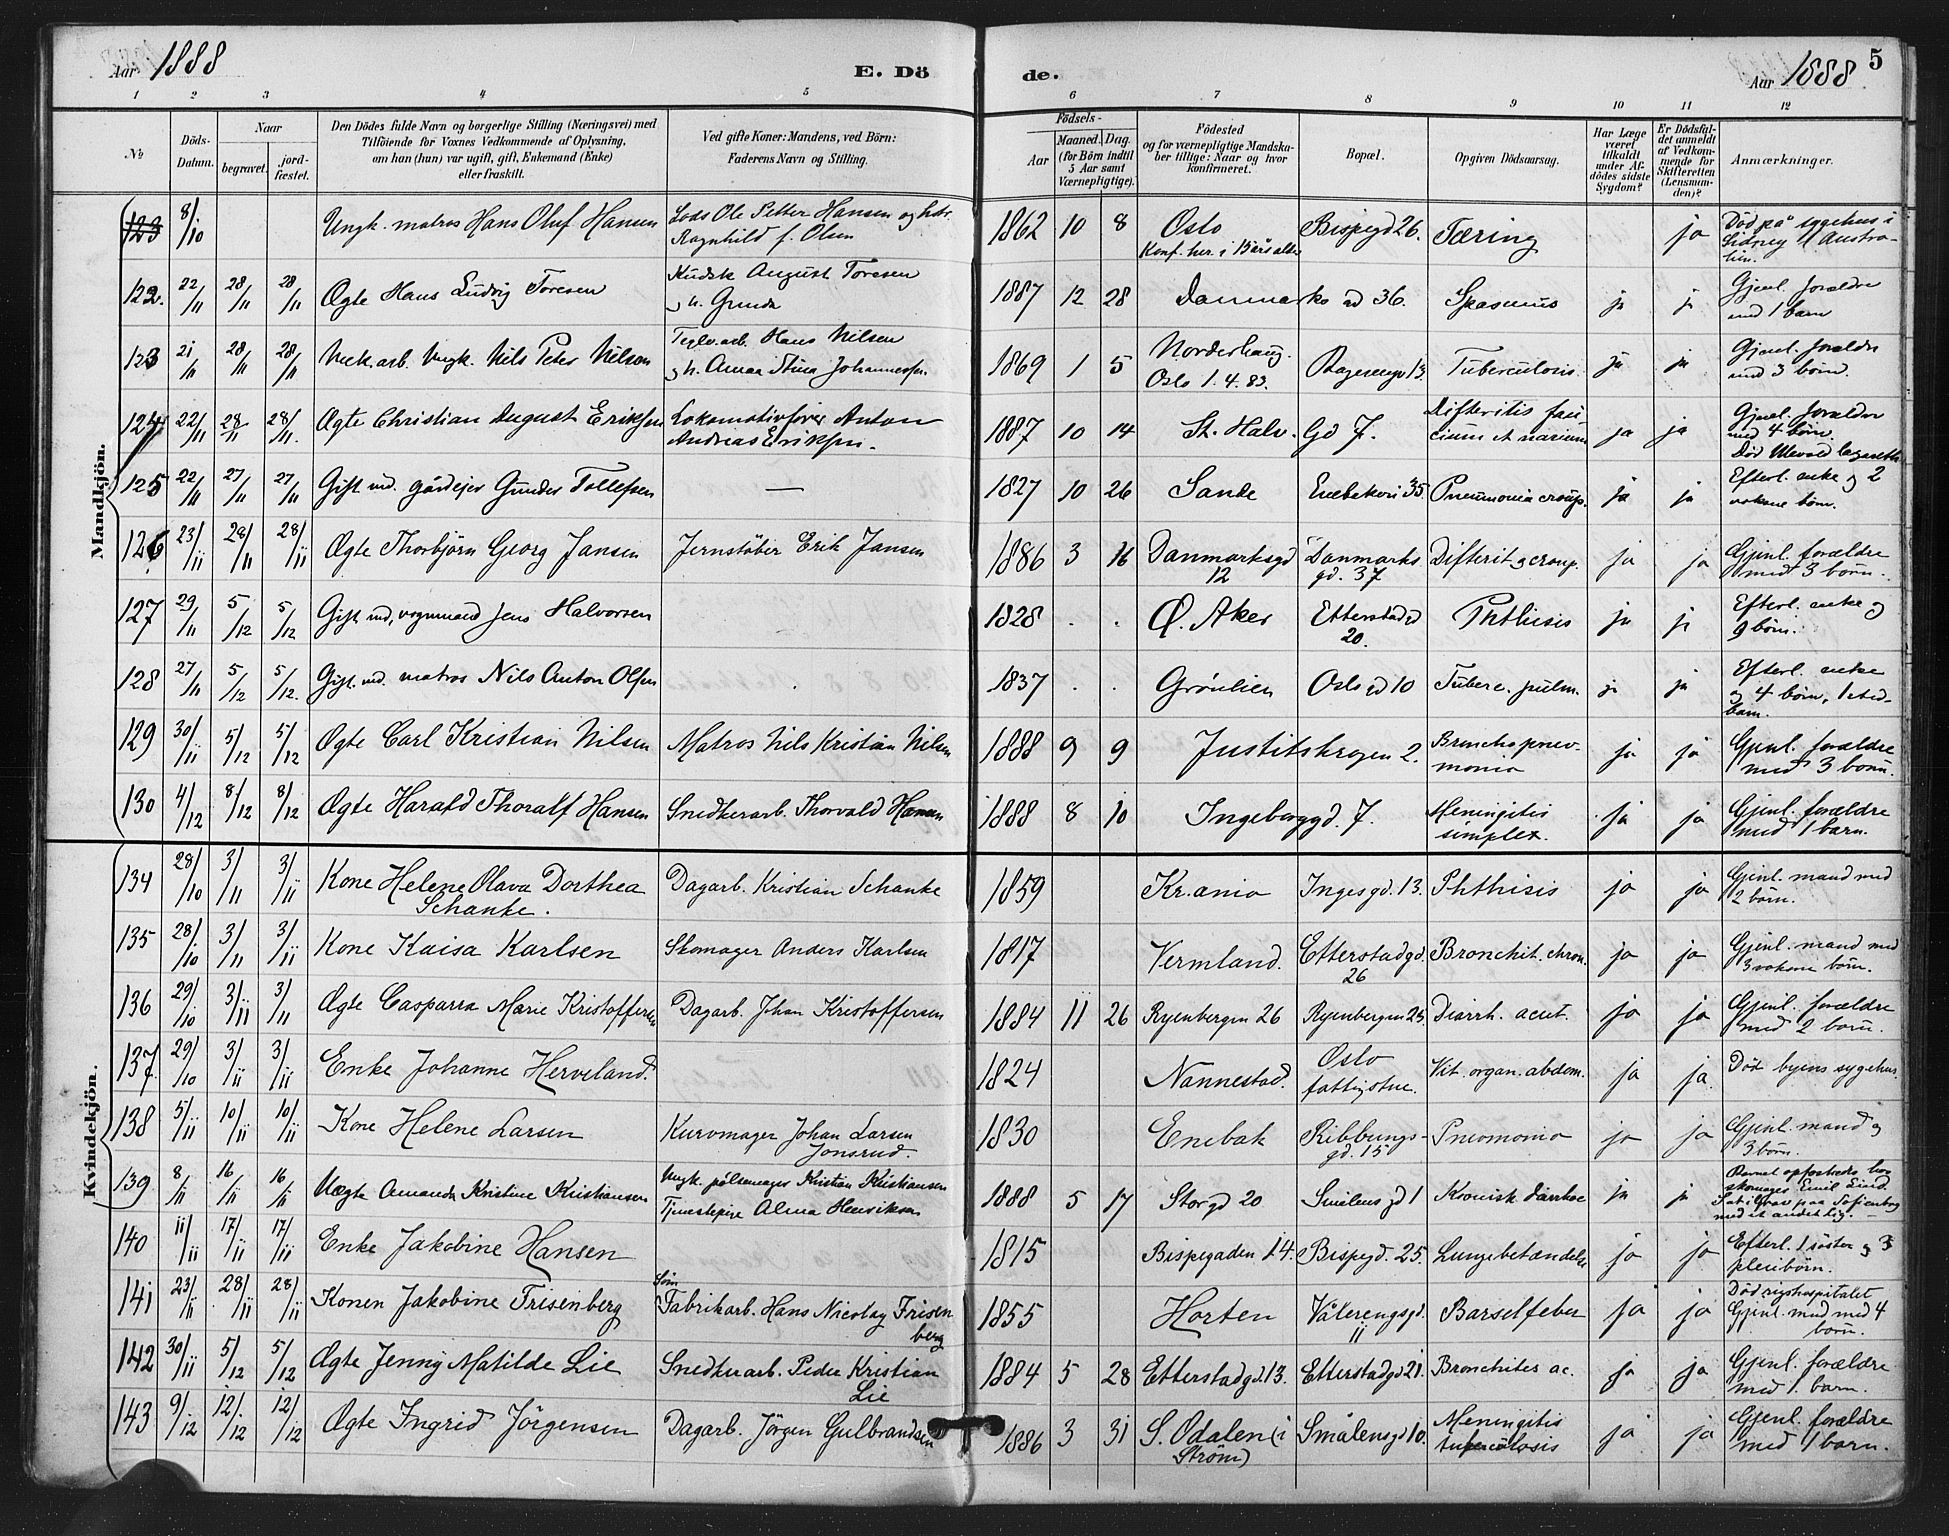 Aar 1888
E. Dö
de.
Aar 1888
5
1 2 3 4 5 6 7 8 9 10 11 12
№
Döds-
Datum.
Naar
begravet.
jord-
fæstet.
Den Dödes fulde Navn og borgerlige Stilling (Næringsvei) med
Tilföiende for Voxnes Vedkommende af Oplysning,
om han (hun) var ugift, gift, Enkemand (Enke)
eller fraskilt.
Ved gifte Koner: Mandens, ved Börn:
Faderens Navn og Stilling.
Födsels-
Aar
Maaned. Dag.
(for Börn indtil
5 Aar samt
Værnepligtige).
Födested
og for værnepligtige Mandska-
ber tillige: Naar og hvor
konfirmeret.
Bopæl.
Opgiven Dödsaarsag.
Har Læge
været
tilkaldt
under Af-
dödes sidste
Sygdom?
Er Dödsfal-
det anmeldt
af Vedkom-
mende for
Skifteretten
(Lensman-
den)?
Anmærkninger.
Mandkjön.
123 8/10 Ungk. matros Hans Oluf Hansen Lods Ole Petter Hansen og hstr. 1862 10 8 Oslo Bispegd 26. Tæring ja Død på sygehus i
Ragnhild f. Olsen Konf. her. i Sidney i Austra-
lien.
122. 22/11 28/11 28/11 Ægte Hans Ludvig Toresen Kudsk August Toresen 1887 12 28 Danmarks gd 36. Spasmus ja ja Gjenl. forældre
og h. Gunda med 1 barn
123 21/11 28/11 28/11 Mek. arb. Ungk. Nils Peter Nilsen Teglv.arb. Hans Nilsen 1869 1 5 Norderhaug. Tuberculosis ja ja Gjenl. forældre
og h. Anna Stina Johannessen Oslo 1.4.83. med 3 børn.
124 22/11 28/11 28/11. Ægte Christian August Eriksen Lokomotivfører Anton 1887 10 14 St. Halv. Gd 7. Difteritis fau- ja ja Gjenl. forældre
Andreas Eriksen. cium et narium med 4 børn.
Død Ullevold lazareth
125 22/11 27/11 27/11 Gift md. gårdejer Gunder Tollefsen — 1827 10 26 Sande Enebakvei 35 Pneumonia croup. ja ja Efterl. enke og 2
voksne børn.
126 23/11 28/11 28/11 Ægte Thorbjörn Georg Jansen Jernstøber Erik Jansen 1886 3 16 Danmarksgd Danmarks Difterit og croup. ja ja Gjenl. forældre
12 gd. 37 med 3 børn.
127 29/11 5/12 5/12 Gift md, vognmand Jens Halvorsen 1828 . . Ø. Aker Etterstadgd Phthisis ja ja Efterl. enke og
20. 9 børn.
128 27/11 5/12 5/12. Gift. md. matros Nils Anton Olsen 1837 . . Grønlien Oslogd 10 Tuberc. pulm. ja ja Efterl. enke
og 4 børn, 1 sted-
barn.
129 30/11 5/12 5/12 Ægte Carl Kristian Nilsen Matros Nils Kristian Nilsen 1888 9 9 Justitskrogen 2. Bronchopneu- ja ja Gjenl. forældre
monia med 3 børn.
130 4/12 8/12 8/12 Ægte Harald Thoralf Hansen Snedkerarb. Thorvald Hansen 1888 8 10 Ingeborggd. 7. Meningitis ja ja Gjenl. forældre
simplex. med 1 barn.
Kvindekjön.
134 28/10 3/11 3/11 Kone Helene Olava Dorthea Dagarb. Kristian Schanke 1859 Kr.ania Ingesgd. 13. Phthisis ja ja Gjenl. mand med
Schanke. 2 børn.
135 28/10 3/11 3/11 Kone Kaisa Karlsen Skomager Anders Karlsen 1817 Vermland. Etterstadgd. Bronchit. chron. ja ja Gjenl. mand med
26 3 voksne børn.
136 29/10 3/11 3/11 Ægte Casparra Marie Kristoffersen Dagarb. Johan Kristoffersen 1884 11 26 Ryenbergen 26 Ryenbergen 25. Diarrh. acut. ja ja Gjenl. forældre
med 2 børn.
137 29/10 3/11 3/11 Enke Johanne Herveland. 1824 Nannestad. Oslo Vit. organ. abdom. ja ja. Død byens sygehus.
fattigstue.
138 5/11 10/11 10/11 Kone Helene Larsen Kurvmager Johan Larsen 1830 Enebak Ribbungs- Pneomonia ja ja Gjenl. mand og
Jonsrud. gd. 15 3 børn.
139 8/11 16/11 16/11 Uægte Amanda Kristine Kristiansen Ungk. pølsemager Kristian Kristiansen 1888 5 17 Storgd 20 Smålensgd 1 Kronisk diarrhoe ja ja Barnet opfostredes hos
Tjenestepige Alma Henriksen skomager Emil Lind.
Sat i Grav paa Sofienberg
med et andet lig. —
140 11/11 17/11 17/11 Enke Jakobine Hansen 1815 Bispegaden 14. Bispegd. 25. Lungebetændelse ja ja Efterl. 1 søster og 3
pleiebørn.
141 23/11 28/11 28/11 Konen Jakobine Frisenberg Fabrikarb. Hans Nicolay Frisen 1855 Horten Vålerengsgd. Barselfeber ja ja Død rigshospitalet
berg 11 Gjenl. mand med 4
børn.
142 30/11 5/12 5/12 Ægte Jenny Matilde Lie Snedkerarb. Peder Kristian 1884 5 28 Etterstadgd. 13. Etterstadgd 21. Bronchites ac. ja ja Gjenl. forældre
Lie med 1 barn.
143 9/12 12/12 12/12 Ægte Ingrid Jörgensen Dagarb. Jörgen Gulbrandsen 1886 3 31 S. Odalen (i Smålensgd 10. Meningitis ja ja Gjenl. forældre
Strøm) tuberculosis med 1 barn.